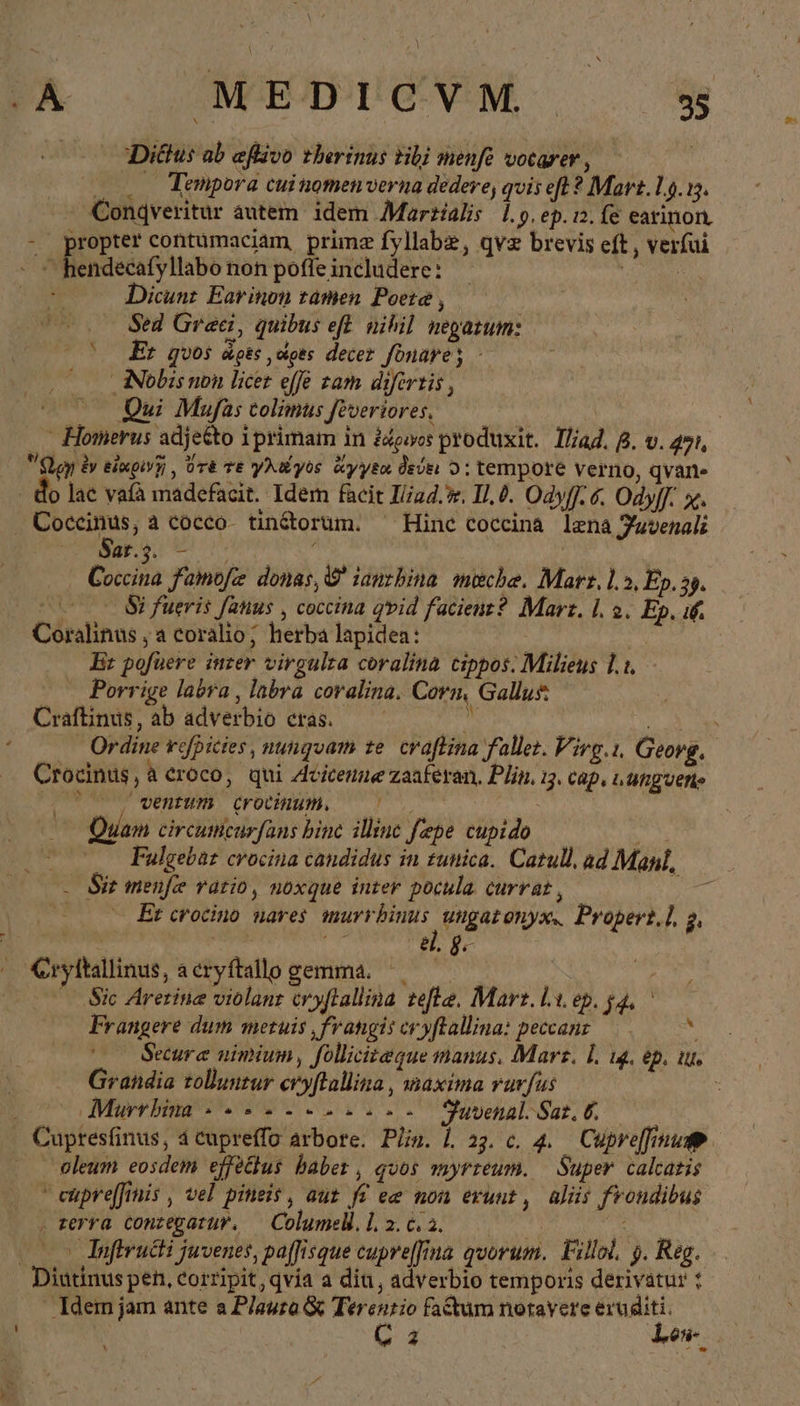 A MEDICVM. 35
Dictus ab æstivo therinus tibi mense vocarer,
Tempora cui nomen verna dedere, qvis est? Mart. l.9.13.
Conqveritur autem idem Martialis l.9. ep. 12. se earinon
propter contumaciam primæ syllabæ, qvæ brevis est, versui
hendecasyllabo non posse includere:
Dicunt Earinon tamen Poetæ,
Sed Græci, quibus est nihil negatum:
Et qvos ἄρες, ἄρες decet sonare;
Nobis non licet esse tam disertis,
Qui Musas colimus severiores.
Homerus adjecto i primam in ἐάρινος produxit. Iliad. β. v. 471,
Ὥρῃ ἐν εἰαρινῇ, ὅτε τε γλάγος ἄγγεα δεύει ɔ: tempore verno, qvan-
do lac vasa madefacit. Idem facit Iliad. π. Il. θ. Odyss. 6. Odyss. χ.
Coccinus, à cocco tinctorum. Hinc coccina læna Juvenali
Sat.3.
Coccina famosæ donas, & ianthina mœchæ. Mart. l.2, Ep. 39.
Si fueris sanus, coccina qvid facient? Mart. l. 2. Ep. 16.
Coralinus, a coralio; herba lapidea:
Et posuere inter virgulta coralina cippos. Milieus l.1.
Porrige labra, labra coralina. Corn, Gallus:
Crastinus, ab adverbio cras.
Ordine respicies, nunqvam te crastina fallet. Virg. 1. Georg.
Crocinus, à croco, qui Avicennæ zaaferan. Plin. 13. cap. 1. ungven-
ventum crocinum.
Quam circumcursans hinc illinc sæpe cupido
Fulgebat crocina candidus in tunica. Catull. ad Manl.
Sit mensæ ratio, noxque inter pocula currat,
Et crocino nares murrhinus ungat onyx. Propert. l. 3.
el. 8.
Crystallinus, a crystallo gemma.
Sic Aretinæ violant crystallina testæ. Mart. l.1. ep. 54.
Frangere dum metuis, frangis crystallina: peccant
Securæ nimium, sollicitæque manus. Mart. l. 14. ep. 111.
Grandia tolluntur crystallina, maxima rursus
Murrhina - - - - - - - - - - Juvenal. Sat. 6.
Cupressinus, à cupresso arbore. Plin. l. 23. c. 4. Cupressinum
oleum eosdem effectus habet, qvos myrteum. Super calcatis
cupressinis, vel pineis, aut si eæ non erunt, aliis frondibus
terra contegatur. Columell. l. 2. c. 2.
Instructi juvenes, passisque cupressina quorum. Fillol. 9. Reg.
Diutinus pen, corripit, qvia a diu, adverbio temporis derivatur:
Idem jam ante a Plauto & Terentio factum notavere eruditi.
C 2 Lon-